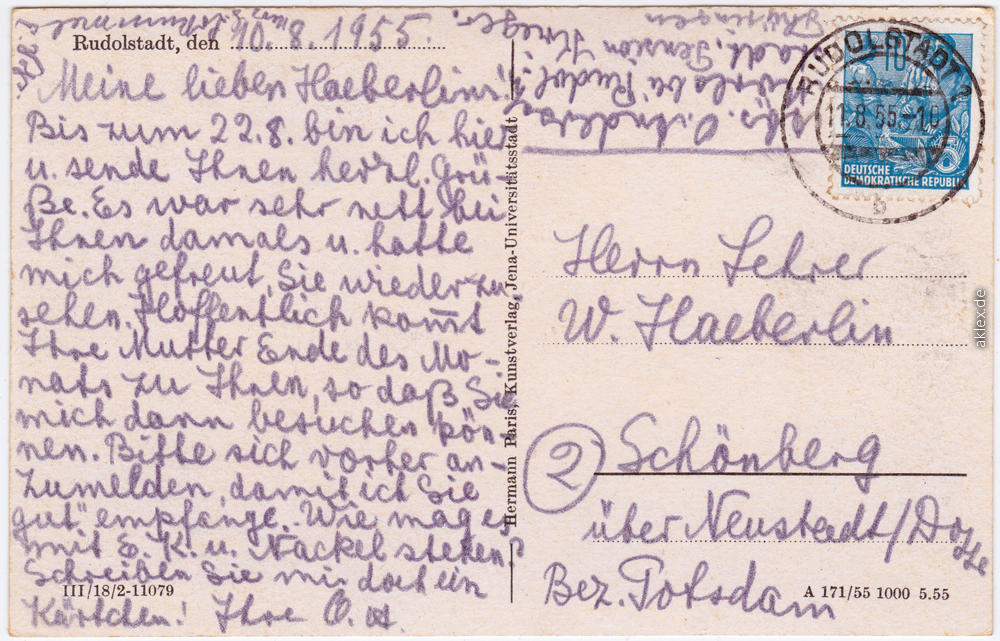 Rudolstadt, den 10. 8. 1955.
Meine lieben Haeberlins!
Bis zum 22.8. bin ich hier
u. sende Ihnen herzl. Grü-
ße. Es war sehr nett bei
Ihnen damals u. hatte
mich gefreut, Sie wieder zu
sehen. Hoffentlich kom̅t
Ihre Mutter Ende des Mo-
nats zu Ihnen, so daß Sie
mich dann besuchen kön-
nen. Bitte sich vorher an-
zumelden, damit ich Sie
gut "empfange". Wie mag es
mit E. K. u. Nackel stehen?
Schreiben Sie mir doch ein
Kärtchen! Ihre O. A.
III/18/2-11079
Hermann Paris, Kunstverlag, Jena-Universitätsstadt
Abs. O. Anders
bei Rudol-
stadt, Pension Krieger
Thüringen
RUDOLSTADT 1
11.8.55.-10
b
10
DEUTSCHE
DEMOKRATISCHE REPUBLIK
Herrn Lehrer
W. Haeberlin
2 Schönberg
über Neustadt/Dosse
Bez. Potsdam
A 171/55 1000 5.55
aklex.de